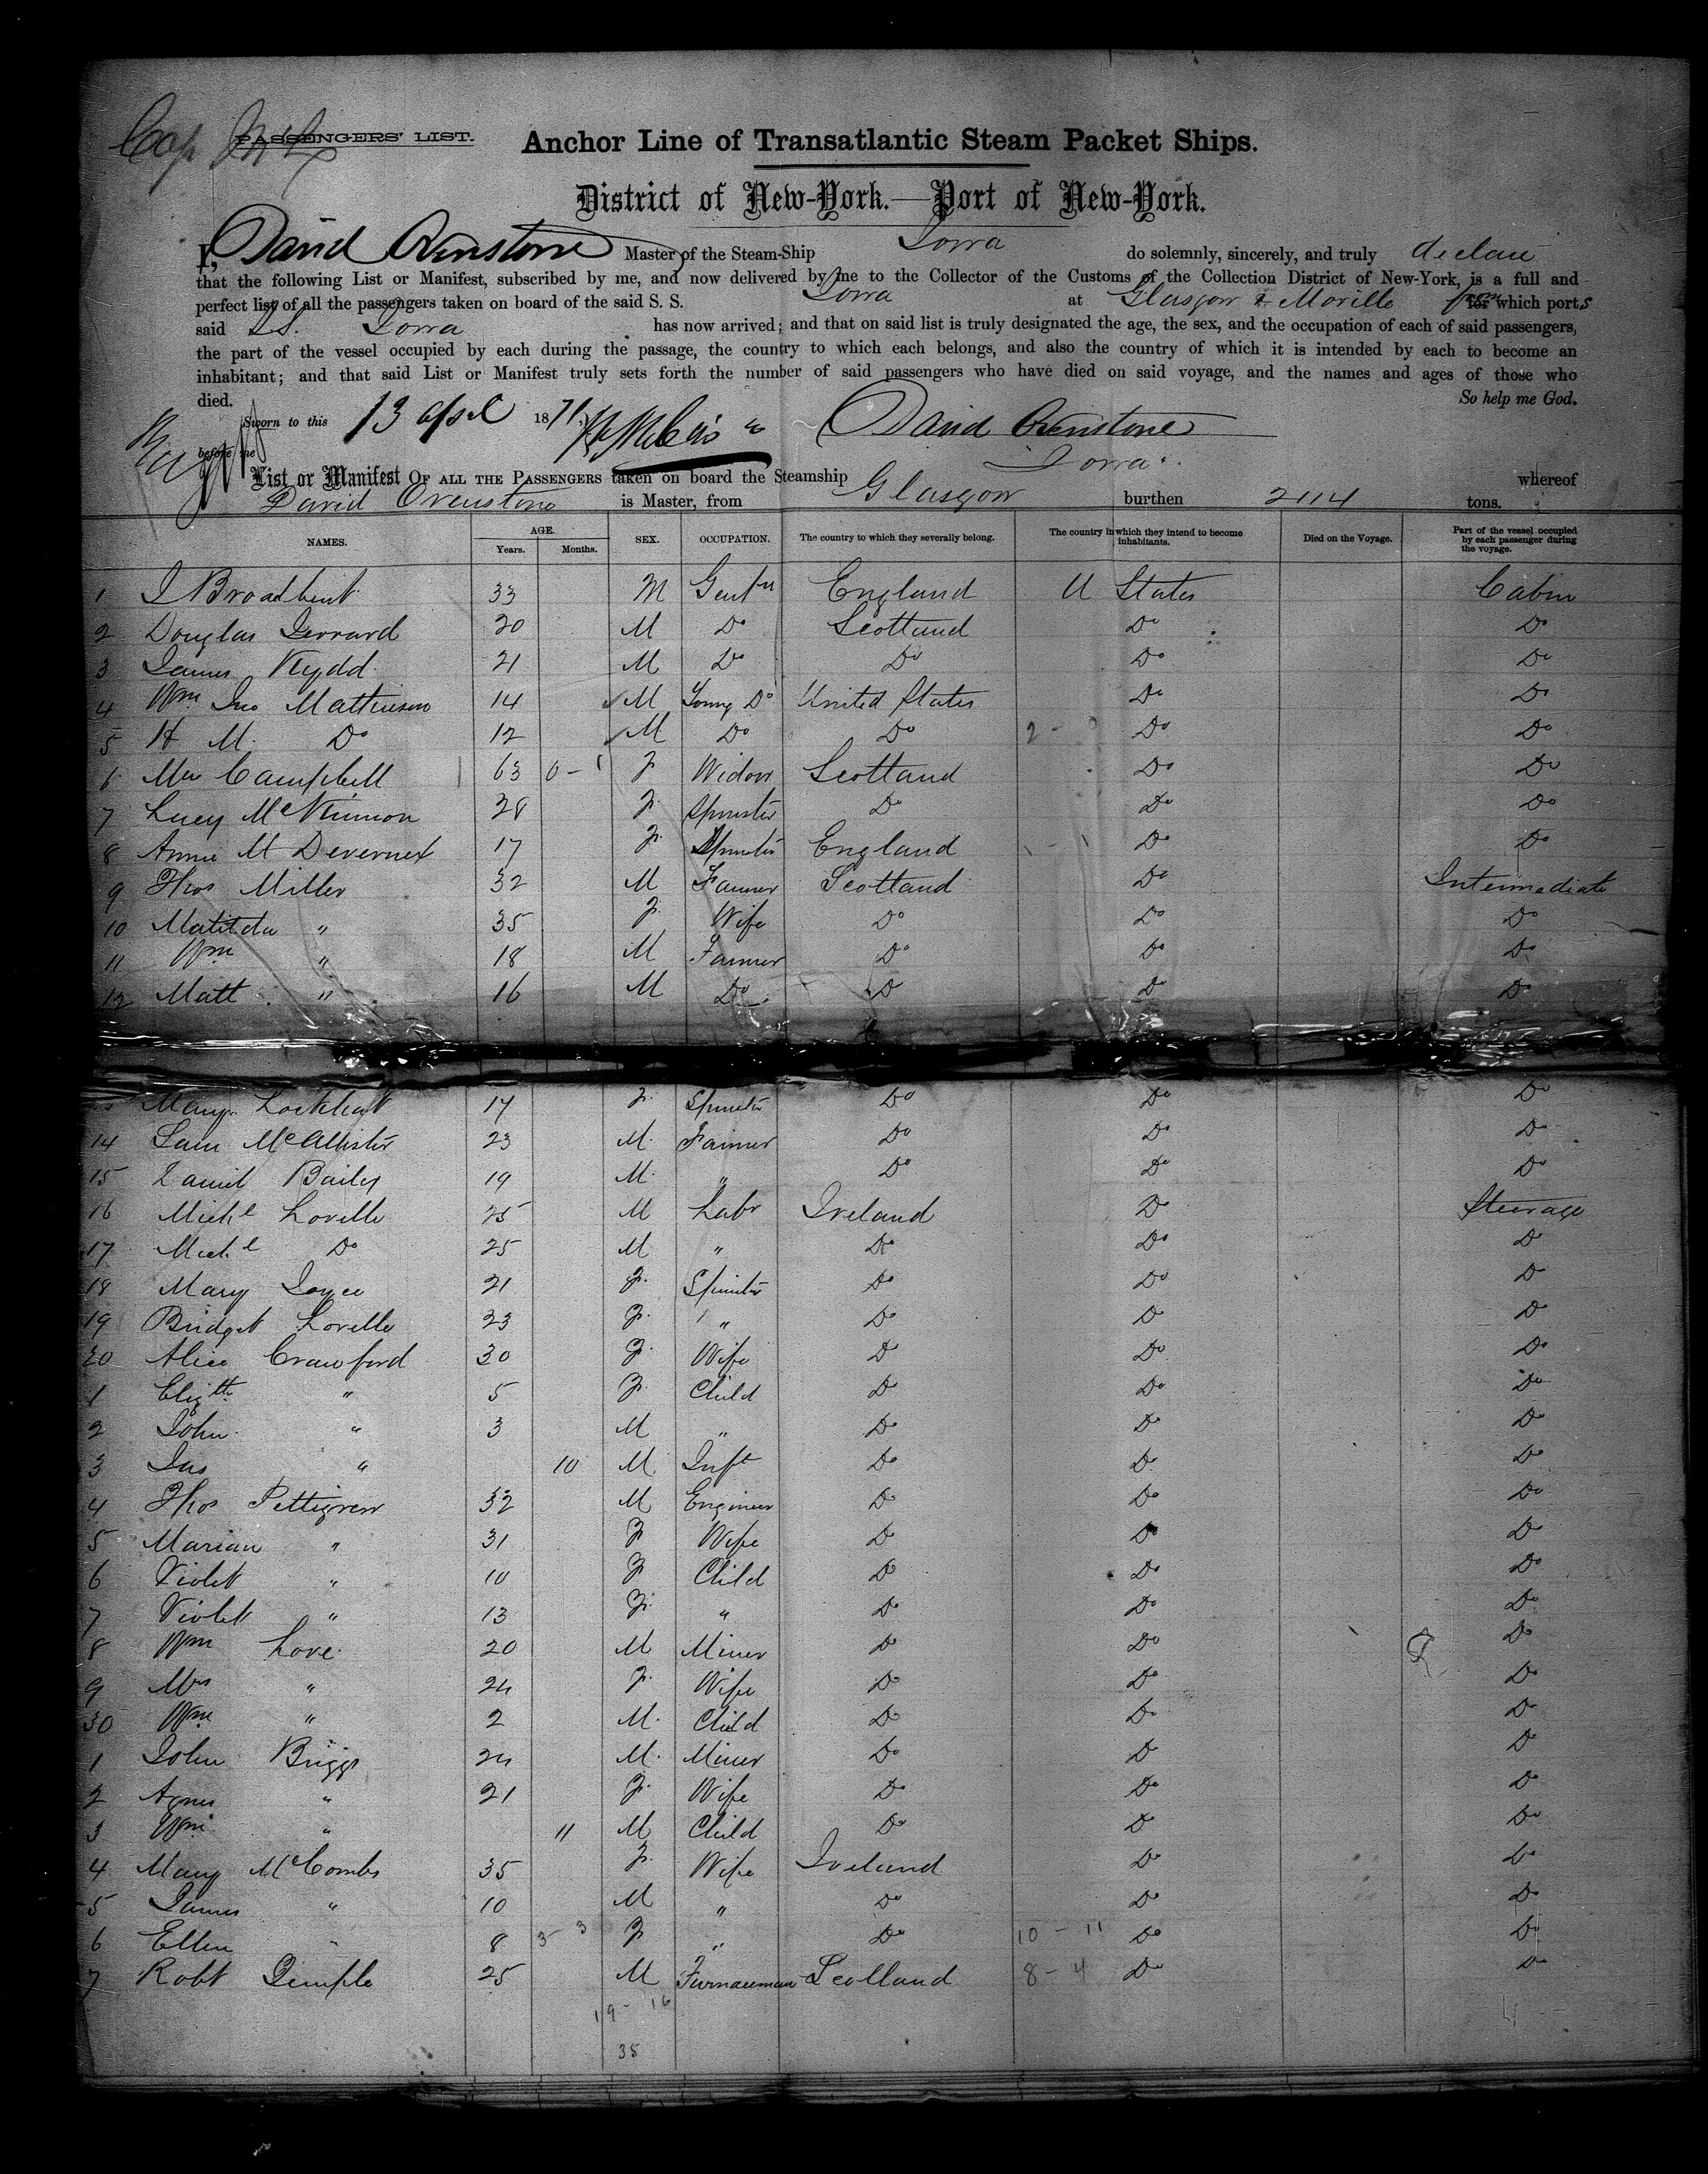 PASSENGERS' LIST.
Anchor Line of Transatlantic Steam Packet Ships.
District of New-York.—Port of New-York.
I, David Ovenstone Master of the Steam-Ship Iowa do solemnly, sincerely, and truly declare
that the following List or Manifest, subscribed by me, and now delivered by me to the Collector of the Customs of the Collection District of New-York, is a full and
perfect list of all the passengers taken on board of the said S. S. Iowa at Glasgow & Moville from which ports
said SS. Iowa has now arrived; and that on said list is truly designated the age, the sex, and the occupation of each of said passengers,
the part of the vessel occupied by each during the passage, the country to which each belongs, and also the country of which it is intended by each to become an
inhabitant; and that said List or Manifest truly sets forth the number of said passengers who have died on said voyage, and the names and ages of those who
died. So help me God.
Sworn to this 13 April 1871 David Ovenstone
before me
List or Manifest OF ALL THE PASSENGERS taken on board the Steamship Iowa whereof
David Ovenstone is Master, from Glasgow burthen 2114 tons.
NAMES. AGE. Years. Months. SEX. OCCUPATION. The country to which they severally belong. The country in which they intend to become inhabitants. Died on the Voyage. Part of the vessel occupied by each passenger during the voyage.
1 J Broadbent 33 M Gentn England U States Cabin
2 Douglas Gerrard 20 M Do Scotland Do Do
3 James Kydd 21 M Do Do Do Do
4 Wm Jno Mathieson 14 M Young Do United States Do Do
5 H M. Do 12 M Do Do 2 - 0 Do Do
6 Mrs Campbell 63 0 - 1 F Widow Scotland Do Do
7 Lucy McKinnon 28 F. Spinster Do Do Do
8 Annie M Devereux 17 F. Spinster England 1 - 1 Do Do
9 Thos Miller 32 M Farmer Scotland Do Intermediate
10 Matilda " 35 F. Wife Do Do Do
11 Wm " 18 M Farmer Do Do Do
12 Matt " 16 M Do Do Do Do
Mary Lockhart 17 F. Spinster Do Do Do
14 Sam McAllister 23 M. Farmer Do Do Do
15 Daniel Bailey 19 M. " Do Do Do
16 Michl Lovelle 25 M Labr Ireland Do Steerage
17 Michl Do 25 M " Do Do Do
18 Mary Joyce 21 F. Spinster Do Do Do
19 Bridget Lovelle 23 F. " Do Do Do
20 Alice Crawford 30 F. Wife Do Do Do
1 Elizth " 5 F. Child Do Do Do
2 John " 3 M " Do Do Do
3 Jas " 10 M. Inft Do Do Do
4 Thos Pettigrew 32 M Engineer Do Do Do
5 Marian " 31 F Wife Do Do Do
6 Violet " 10 F Child Do Do Do
7 Violet " 13 F. " Do Do Do
8 Wm Love 20 M Miner Do Do Do
9 Mrs " 24 F. Wife Do Do Do
30 Wm " 2 M. Child Do Do Do
1 John Briggs 24 M. Miner Do Do Do
2 Agnes " 21 F. Wife Do Do Do
3 Wm " 11 M Child Do Do Do
4 Mary McCombs 35 F. Wife Ireland Do Do
5 James " 10 M " Do Do Do
6 Ellen " 8 3 - 3 F " Do 10 - 11 Do Do
7 Robt Temple 25 M Furnaceman Scotland 8 - 4 Do Do
19 - 16
35